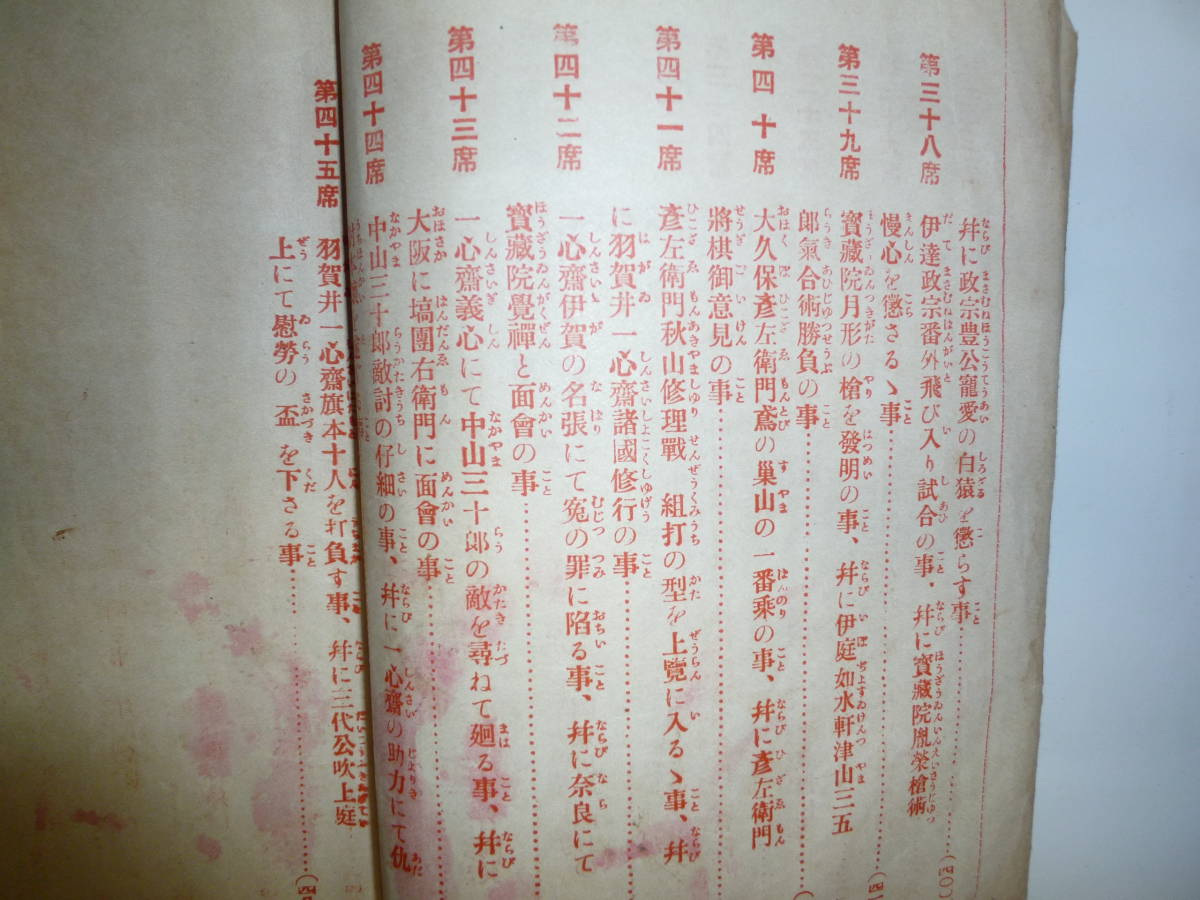 幷に政宗豊公寵愛の白猿を懲らす事
第三十八席
伊達政宗番外飛び入り試合の事、幷に寶藏院胤榮槍術
慢心を懲さるゝ事
第三十九席
寶藏院月形の槍を發明の事、幷に伊庭如水軒津山三五
郎氣合術勝負の事
第四十席
大久保彦左衛門鳶の巢山の一番乘の事、幷に彦左衛門
將棋御意見の事
第四十一席
彦左衛門秋山修理戰 組打の型を上覽に入るゝ事、幷
に羽賀井一心齋諸國修行の事
第四十二席
一心齋伊賀の名張にて寃の罪に陷る事、幷に奈良にて
寶藏院覺禪と面會の事
第四十三席
一心齋義心にて中山三十郎の敵を尋ねて廻る事、幷に
大阪に塙團右衛門に面會の事
第四十四席
中山三十郎敵討の仔細の事、幷に一心齋の助力にて仇
第四十五席
羽賀井一心齋旗本十人を打負す事、幷に三代公吹上庭
上にて慰勞の盃を下さる事